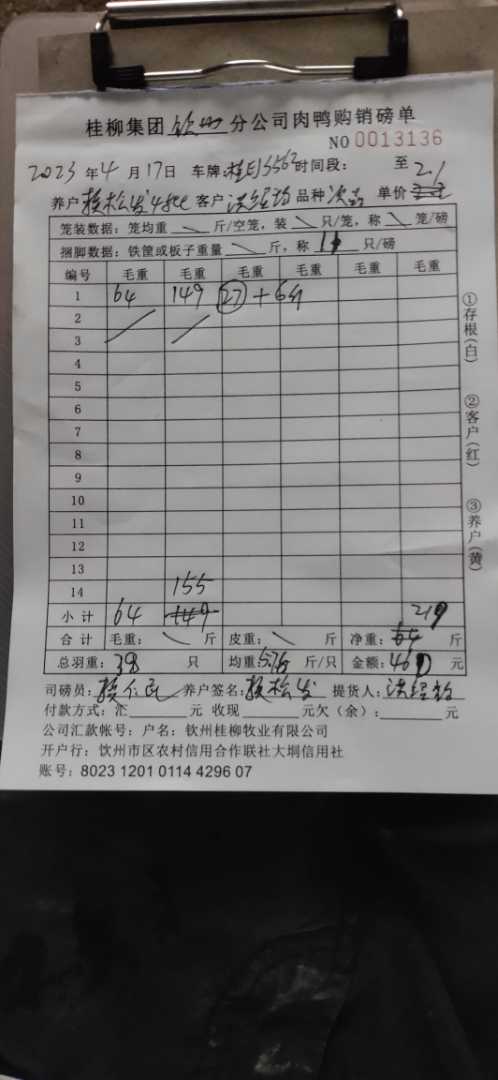 桂柳集团 钦州 分公司肉鸭购销磅单
NO 0013136
2023 年 4 月 17 日 车牌 时间段: 至
养户 客户 品种 次品 单价 2.1
笼装数据: 笼均重 斤/空笼, 装 只/笼, 称 笼/磅
捆脚数据: 铁筐或板子重量 斤, 称 只/磅
编号 毛重 毛重 毛重 毛重 毛重 毛重
1 64 149 27 + 64
2
3
4
5
6
7
8
9
10
11
12
13
14 155
小计 64 149 219
合计 毛重: 斤 皮重: 斤 净重: 64 斤
总羽重: 38 只 均重 5.76 斤/只 金额: 460 元
司磅员: 养户签名: 提货人:
付款方式: 汇 元 收现 元欠(余): 元
公司汇款帐号: 户名: 钦州桂柳牧业有限公司
开户行: 钦州市区农村信用合作联社大垌信用社
账号: 8023 1201 0114 4296 07
①存根(白)
②客户(红)
③养户(黄)